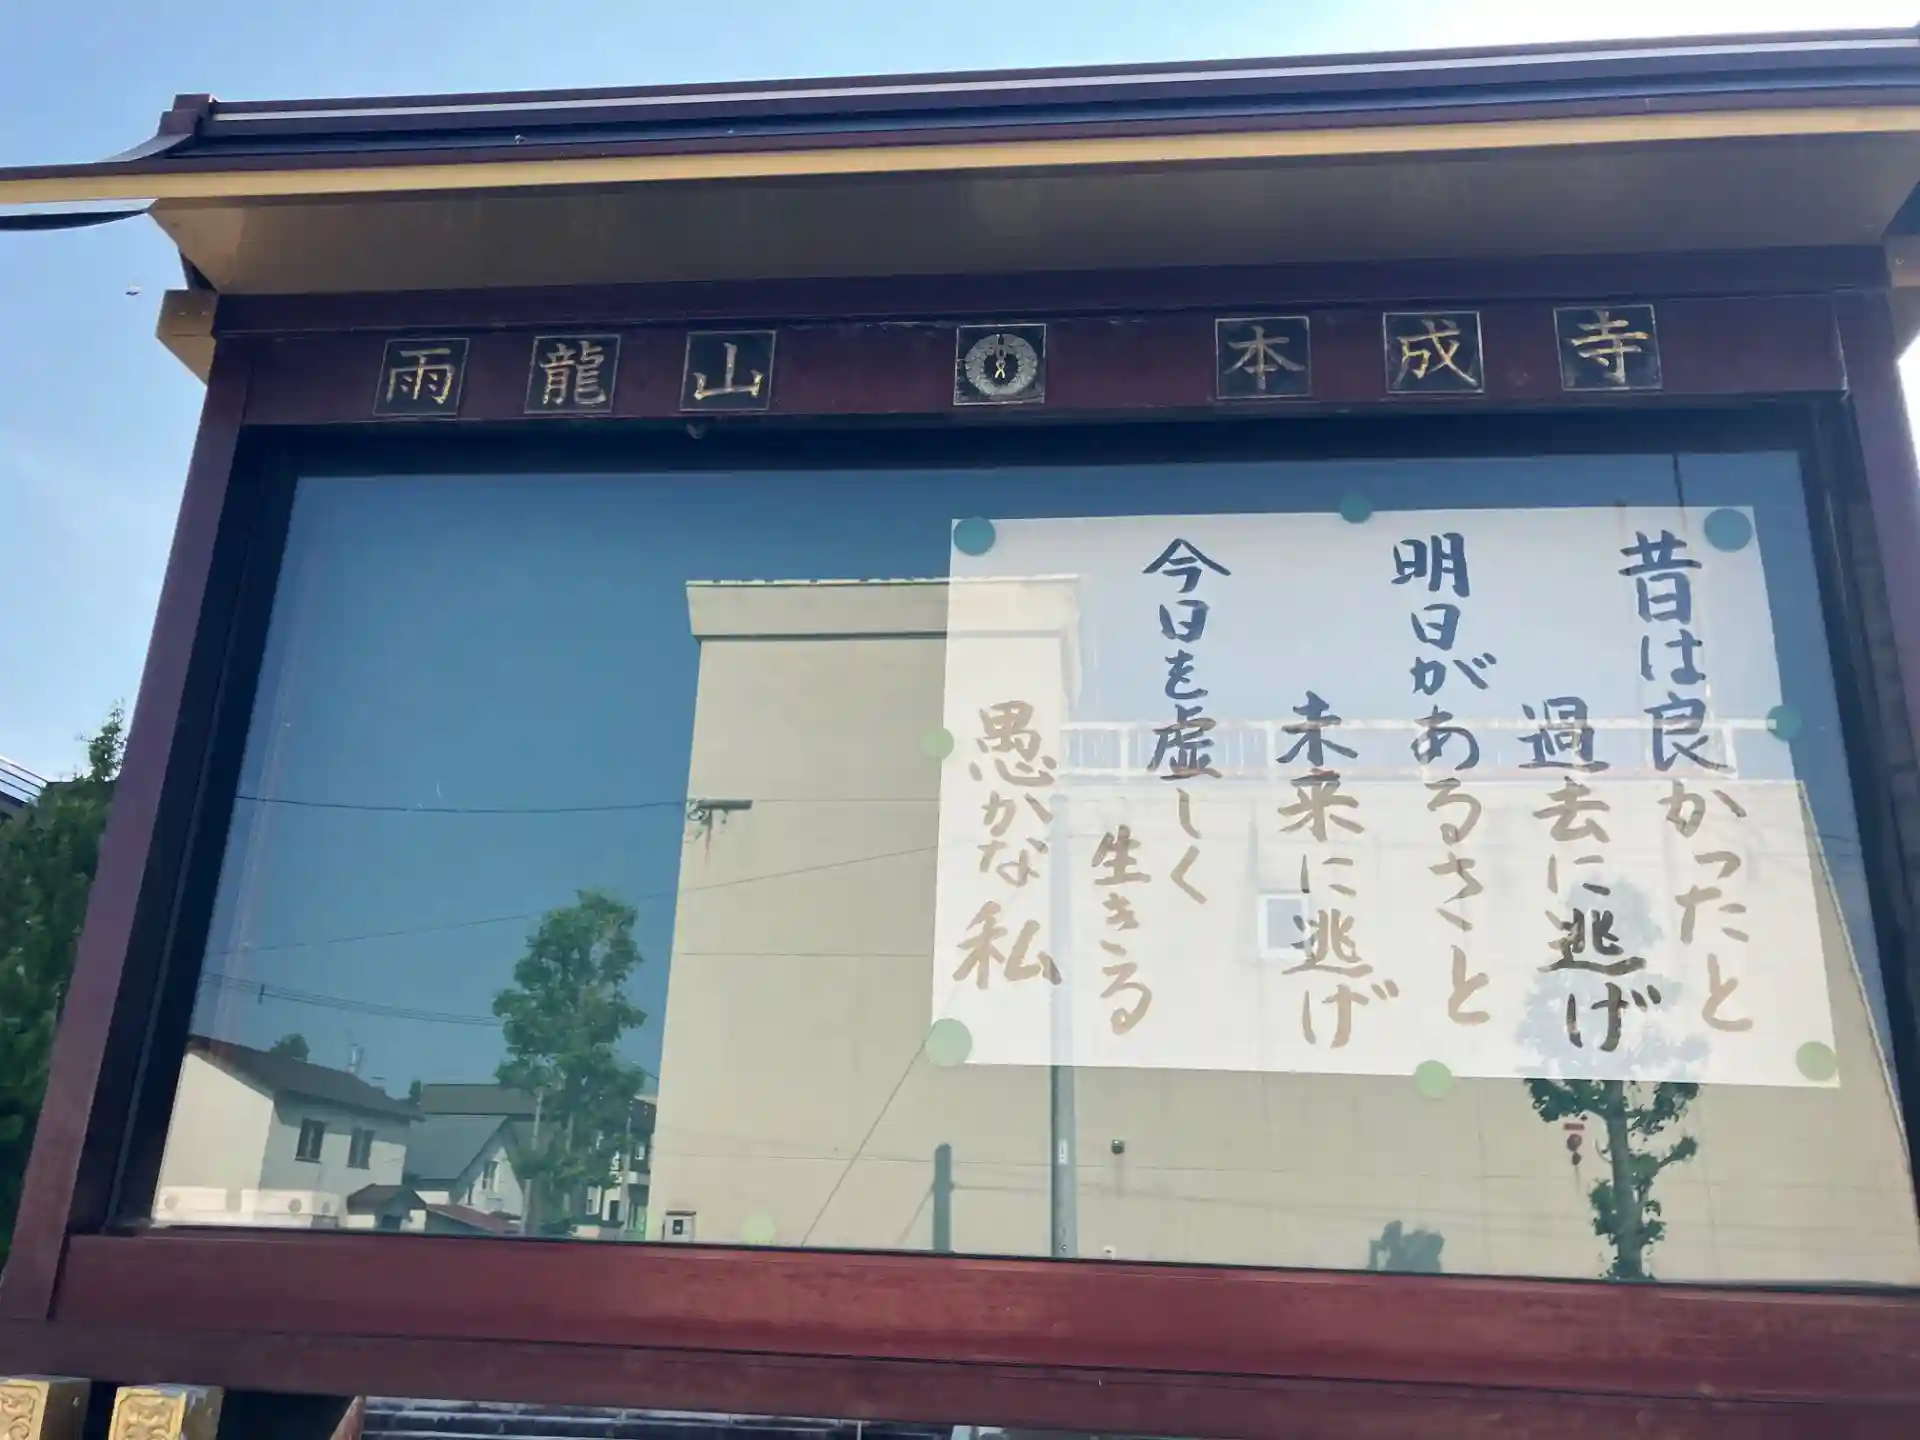 雨龍山 本成寺
昔は良かったと
過去に逃げ
明日があるさと
未来に逃げ
今日を虚しく
生きる
愚かな私